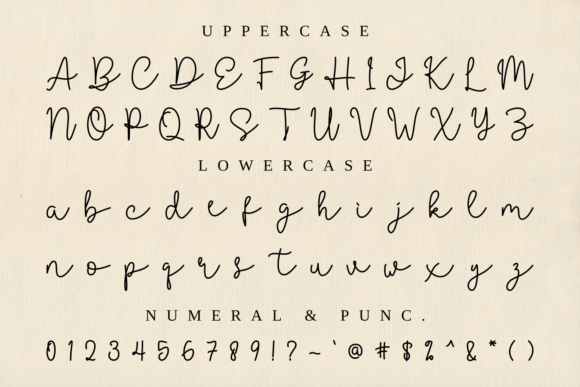 UPPERCASE
A B C D E F G H I J K L M
N O P Q R S T U V W X Y Z
LOWERCASE
a b c d e f g h i j k l m
n o p q r s t u v w x y z
NUMERAL & PUNC.
0 1 2 3 4 5 6 7 8 9 ! ? ~ ` @ # $ % ^ & * ( )